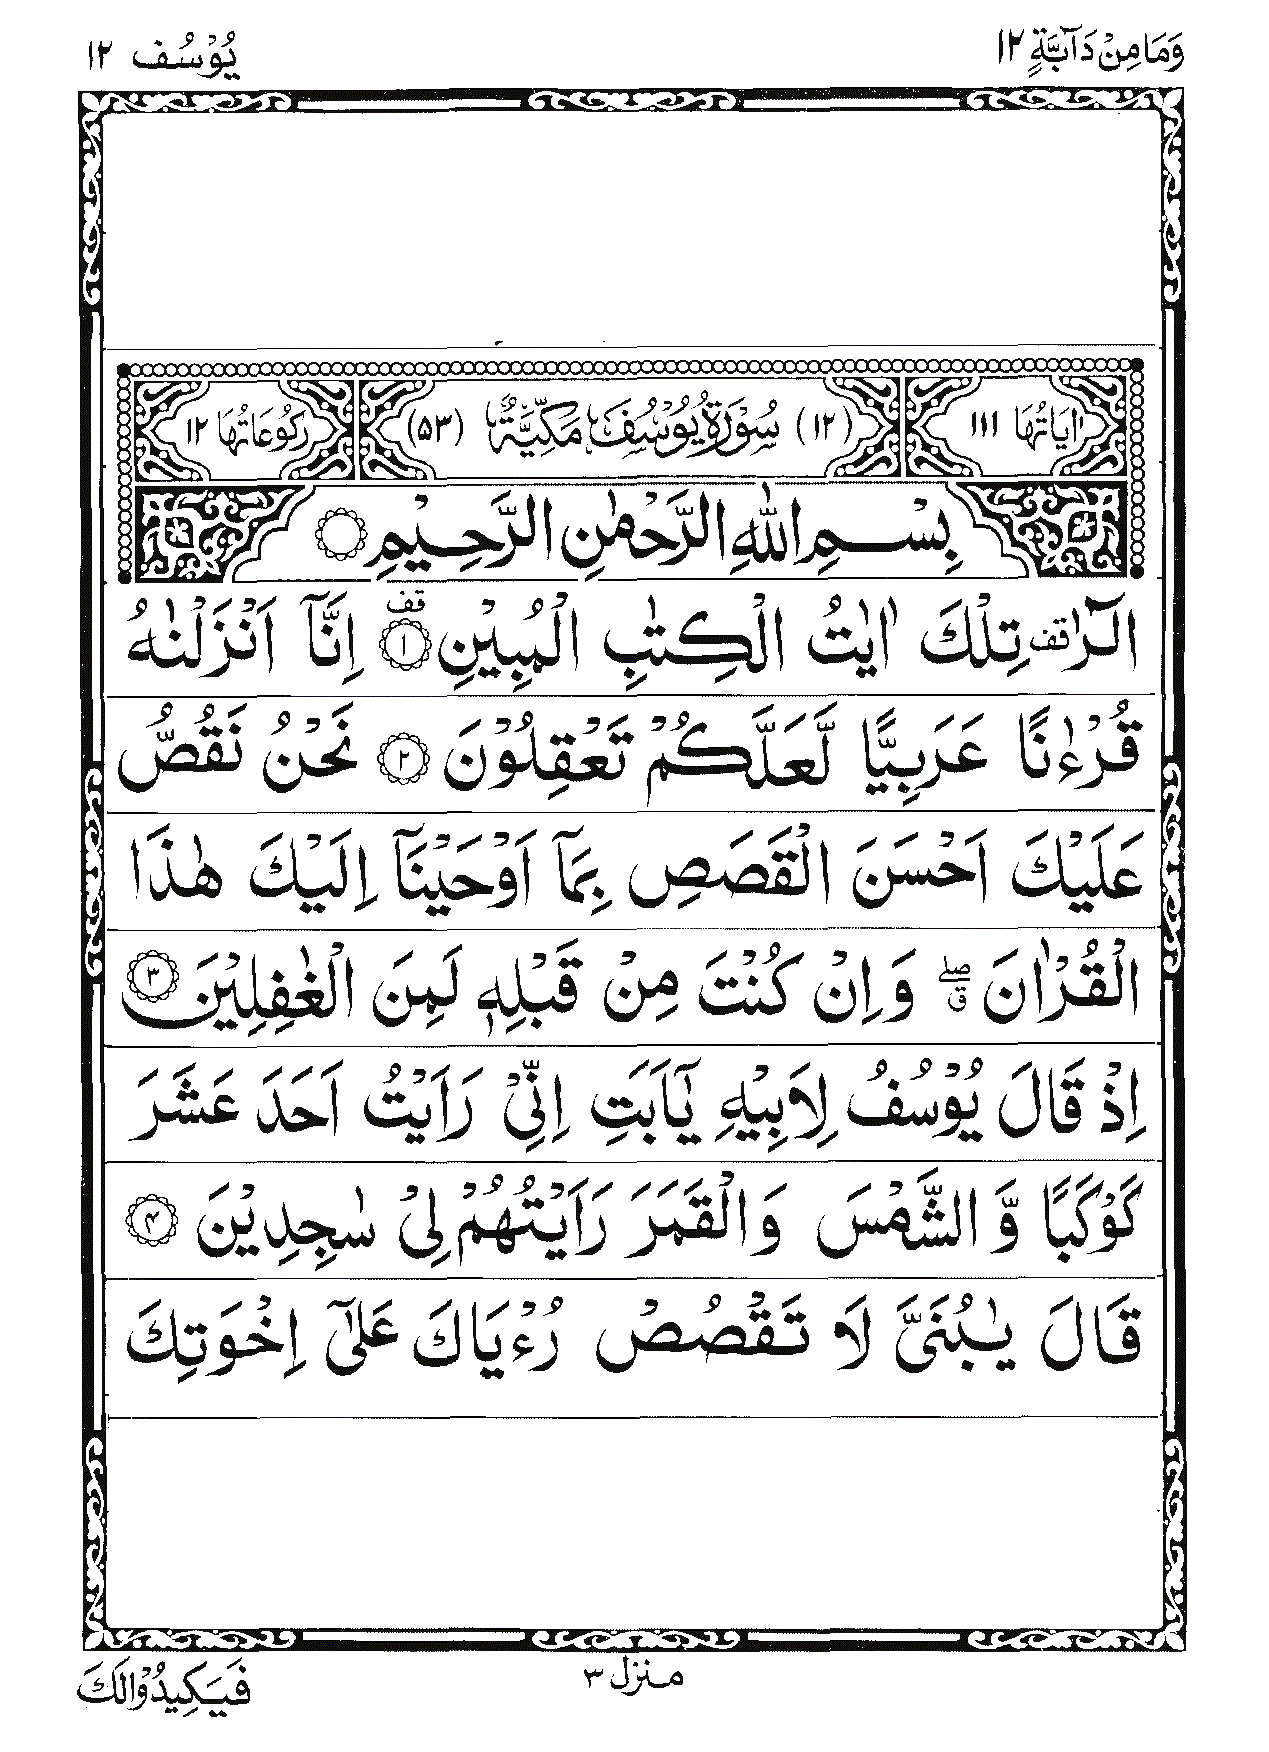 وَمَا مِنْ دَآبَّةٍ ١٢ يُوْسُف ١٢
اٰيَاتُهَا ١١١ (١٢) سُوْرَةُ يُوْسُفَ مَكِّيَّةٌ (٥٣) رُكُوْعَاتُهَا ١٢
بِسْمِ اللّٰهِ الرَّحْمٰنِ الرَّحِيْمِ
الٓرٰ قف تِلْكَ اٰيٰتُ الْكِتٰبِ الْمُبِيْنِ ١ قف اِنَّآ اَنْزَلْنٰهُ
قُرْءٰنًا عَرَبِيًّا لَّعَلَّكُمْ تَعْقِلُوْنَ ٢ نَحْنُ نَقُصُّ
عَلَيْكَ اَحْسَنَ الْقَصَصِ بِمَآ اَوْحَيْنَآ اِلَيْكَ هٰذَا
الْقُرْاٰنَ صلے ق وَاِنْ كُنْتَ مِنْ قَبْلِهٖ لَمِنَ الْغٰفِلِيْنَ ٣
اِذْ قَالَ يُوْسُفُ لِاَبِيْهِ يٰٓاَبَتِ اِنِّيْ رَاَيْتُ اَحَدَ عَشَرَ
كَوْكَبًا وَّ الشَّمْسَ وَالْقَمَرَ رَاَيْتُهُمْ لِيْ سٰجِدِيْنَ ٤
قَالَ يٰبُنَيَّ لَا تَقْصُصْ رُءْيَاكَ عَلٰٓى اِخْوَتِكَ
منزل ٣
فَيَكِيْدُوْا لَكَ